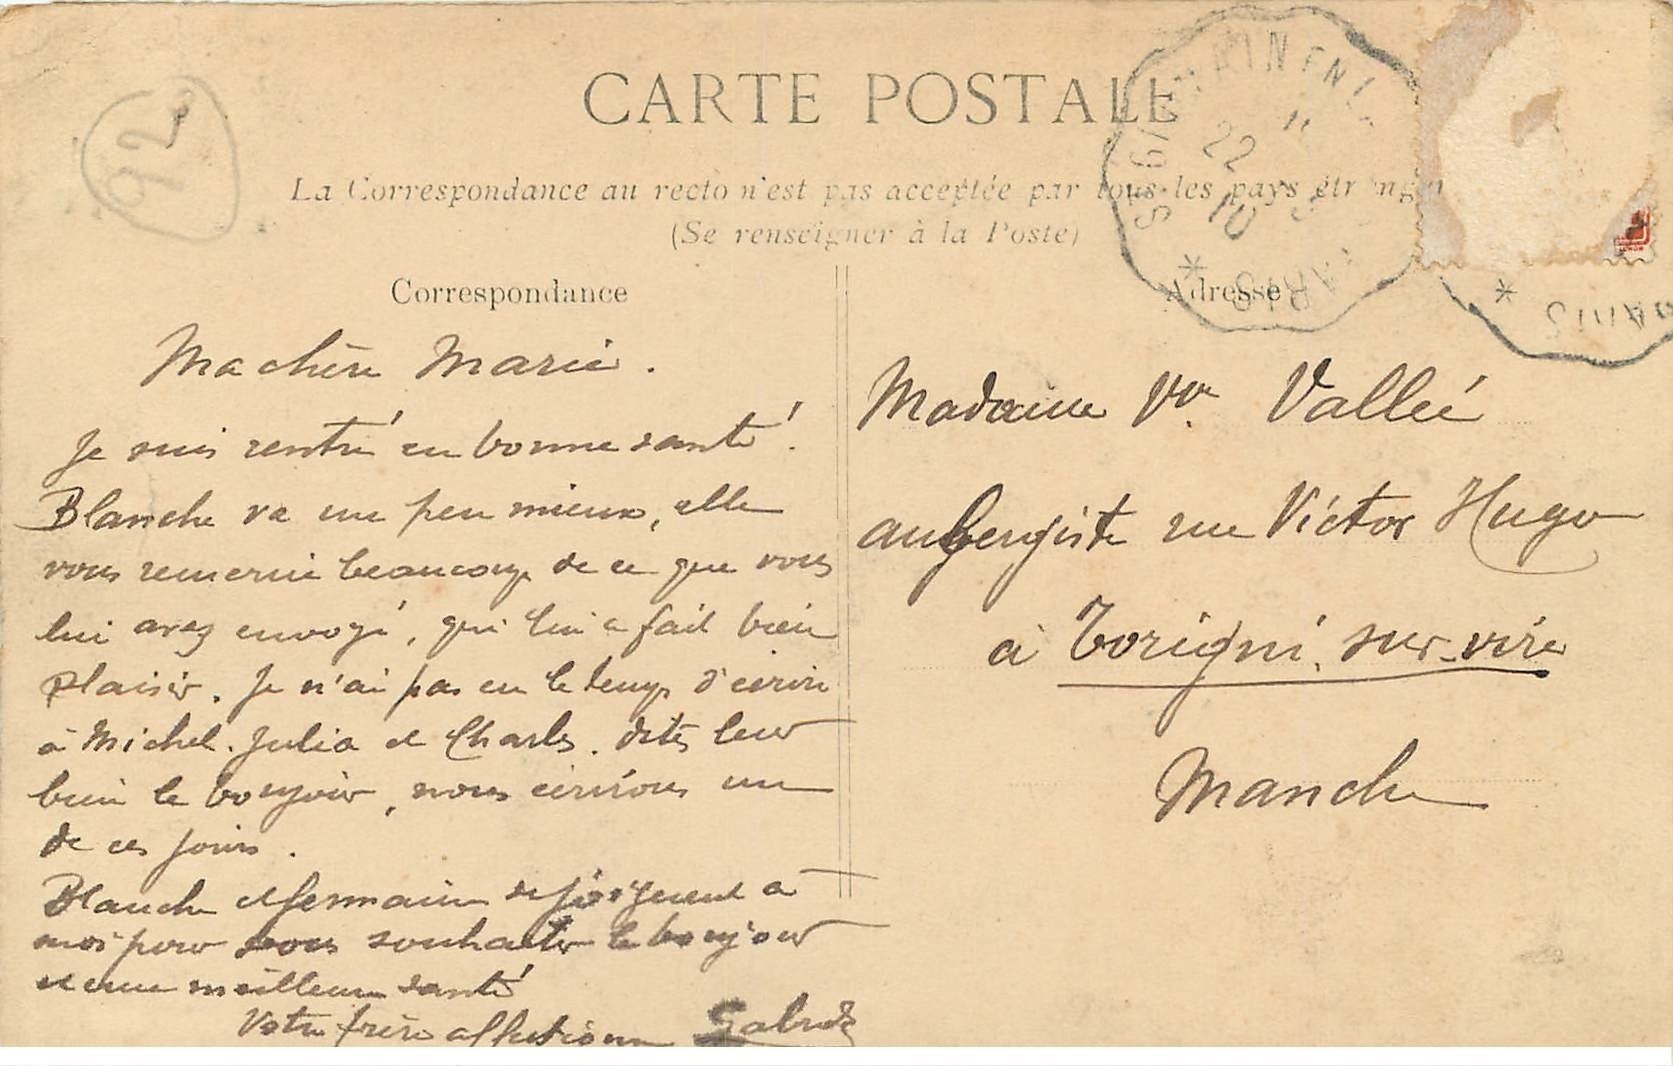 CARTE POSTALE
La Correspondance au recto n'est pas acceptée par tous les pays étranger
(Se renseigner à la Poste)
Correspondance
Adresse
92
22
10
PARIS
Ma chère Marie.
Je suis rentré en bonne santé!
Blanche va un peu mieux, elle
vous remercie beaucoup de ce que vous
lui avez envoyé, qui lui a fait bien
plaisir. Je n'ai pas eu le temps d'écrire
à Michel. Julia et Charles. dites leur
bien le bonjour, nous écrirons un
de ces jours.
Blanche et Germain se joignent à
moi pour vous souhaiter le bonjour
et une meilleure santé
Votre frère
Madame Vve Vallée
aubergiste rue Victor Hugo
à Torigni. sur. vire
Manche